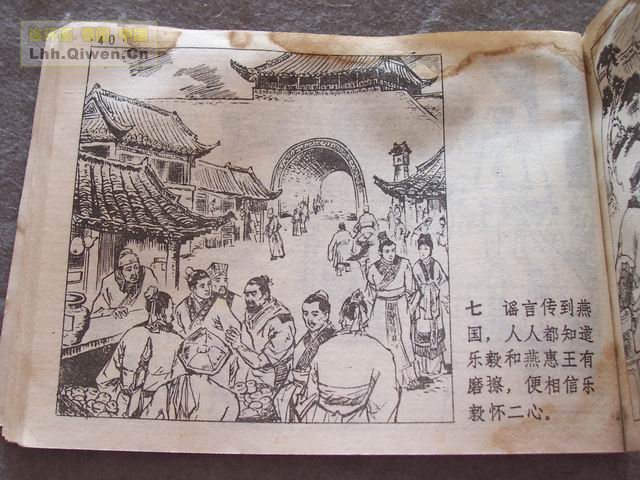 40
Lhh.Qiwen.Cn
七 谣言传到燕
国，人人都知道
乐毅和燕惠王有
磨擦，便相信乐
毅怀二心。